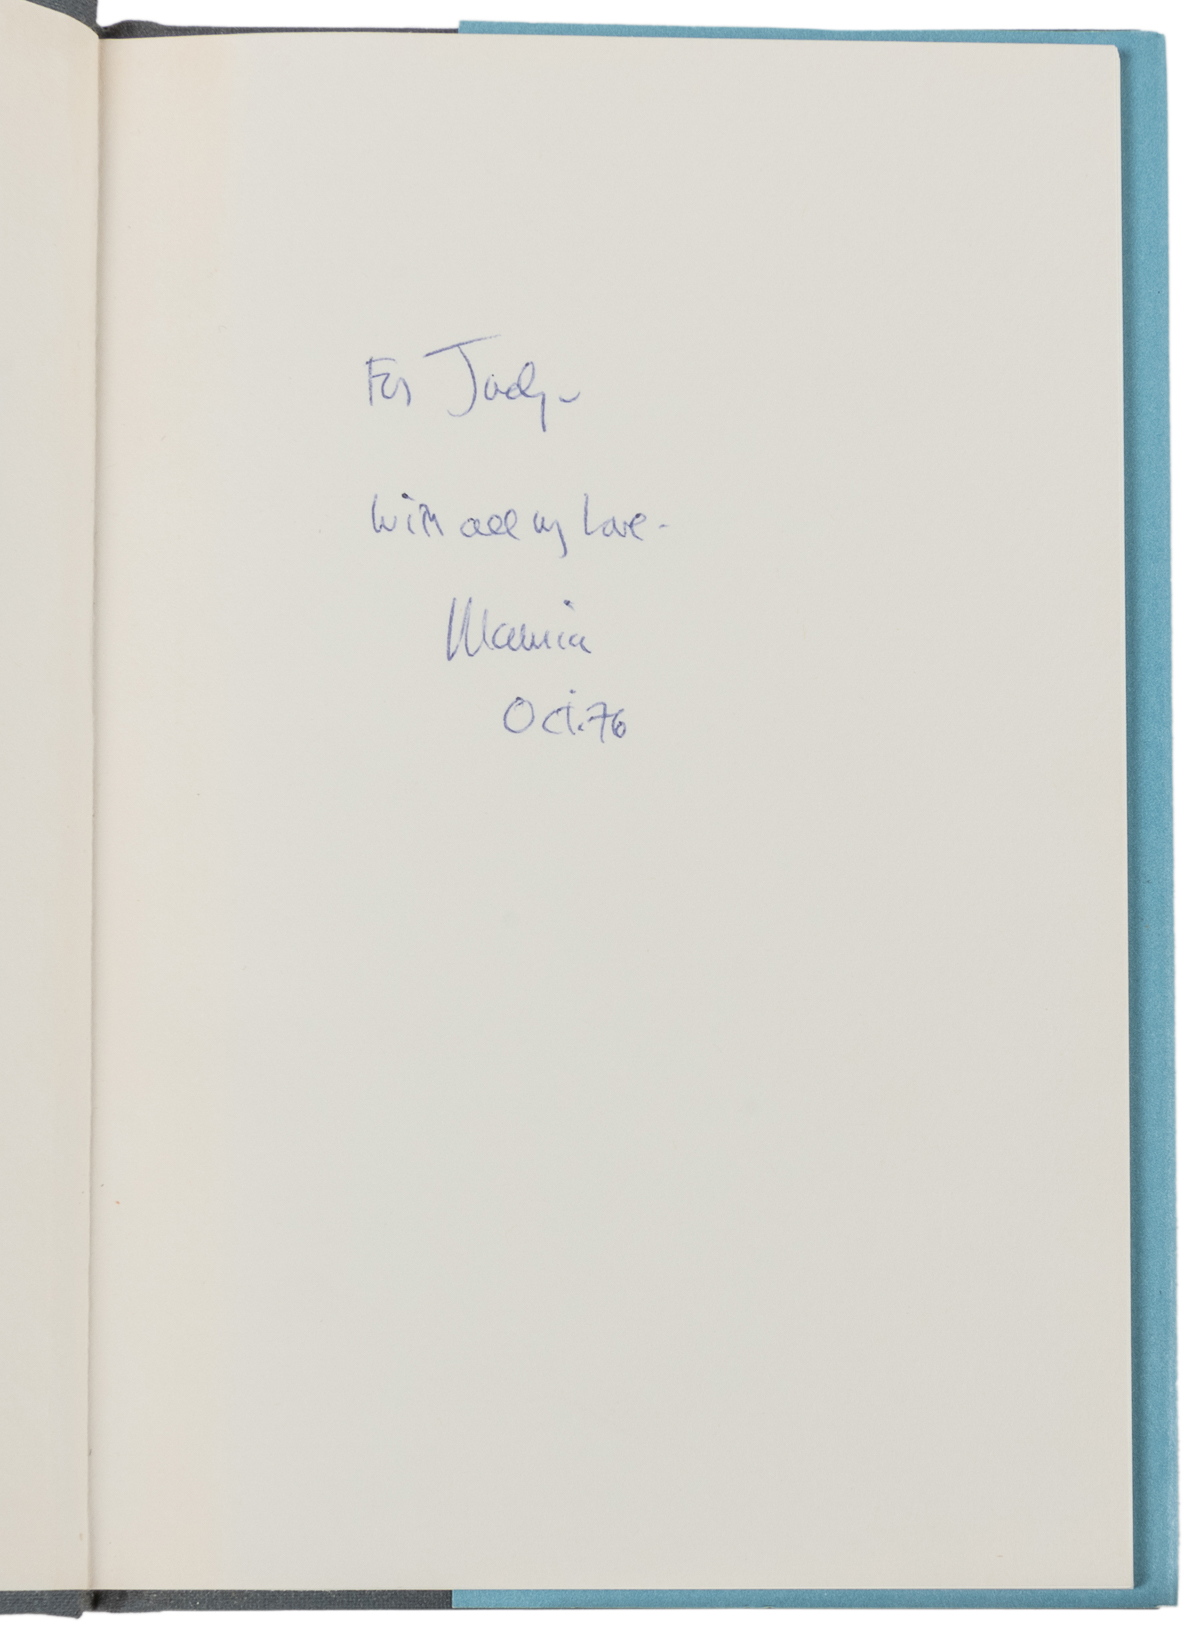 For Judy -
With all my Love -
Oct. 76